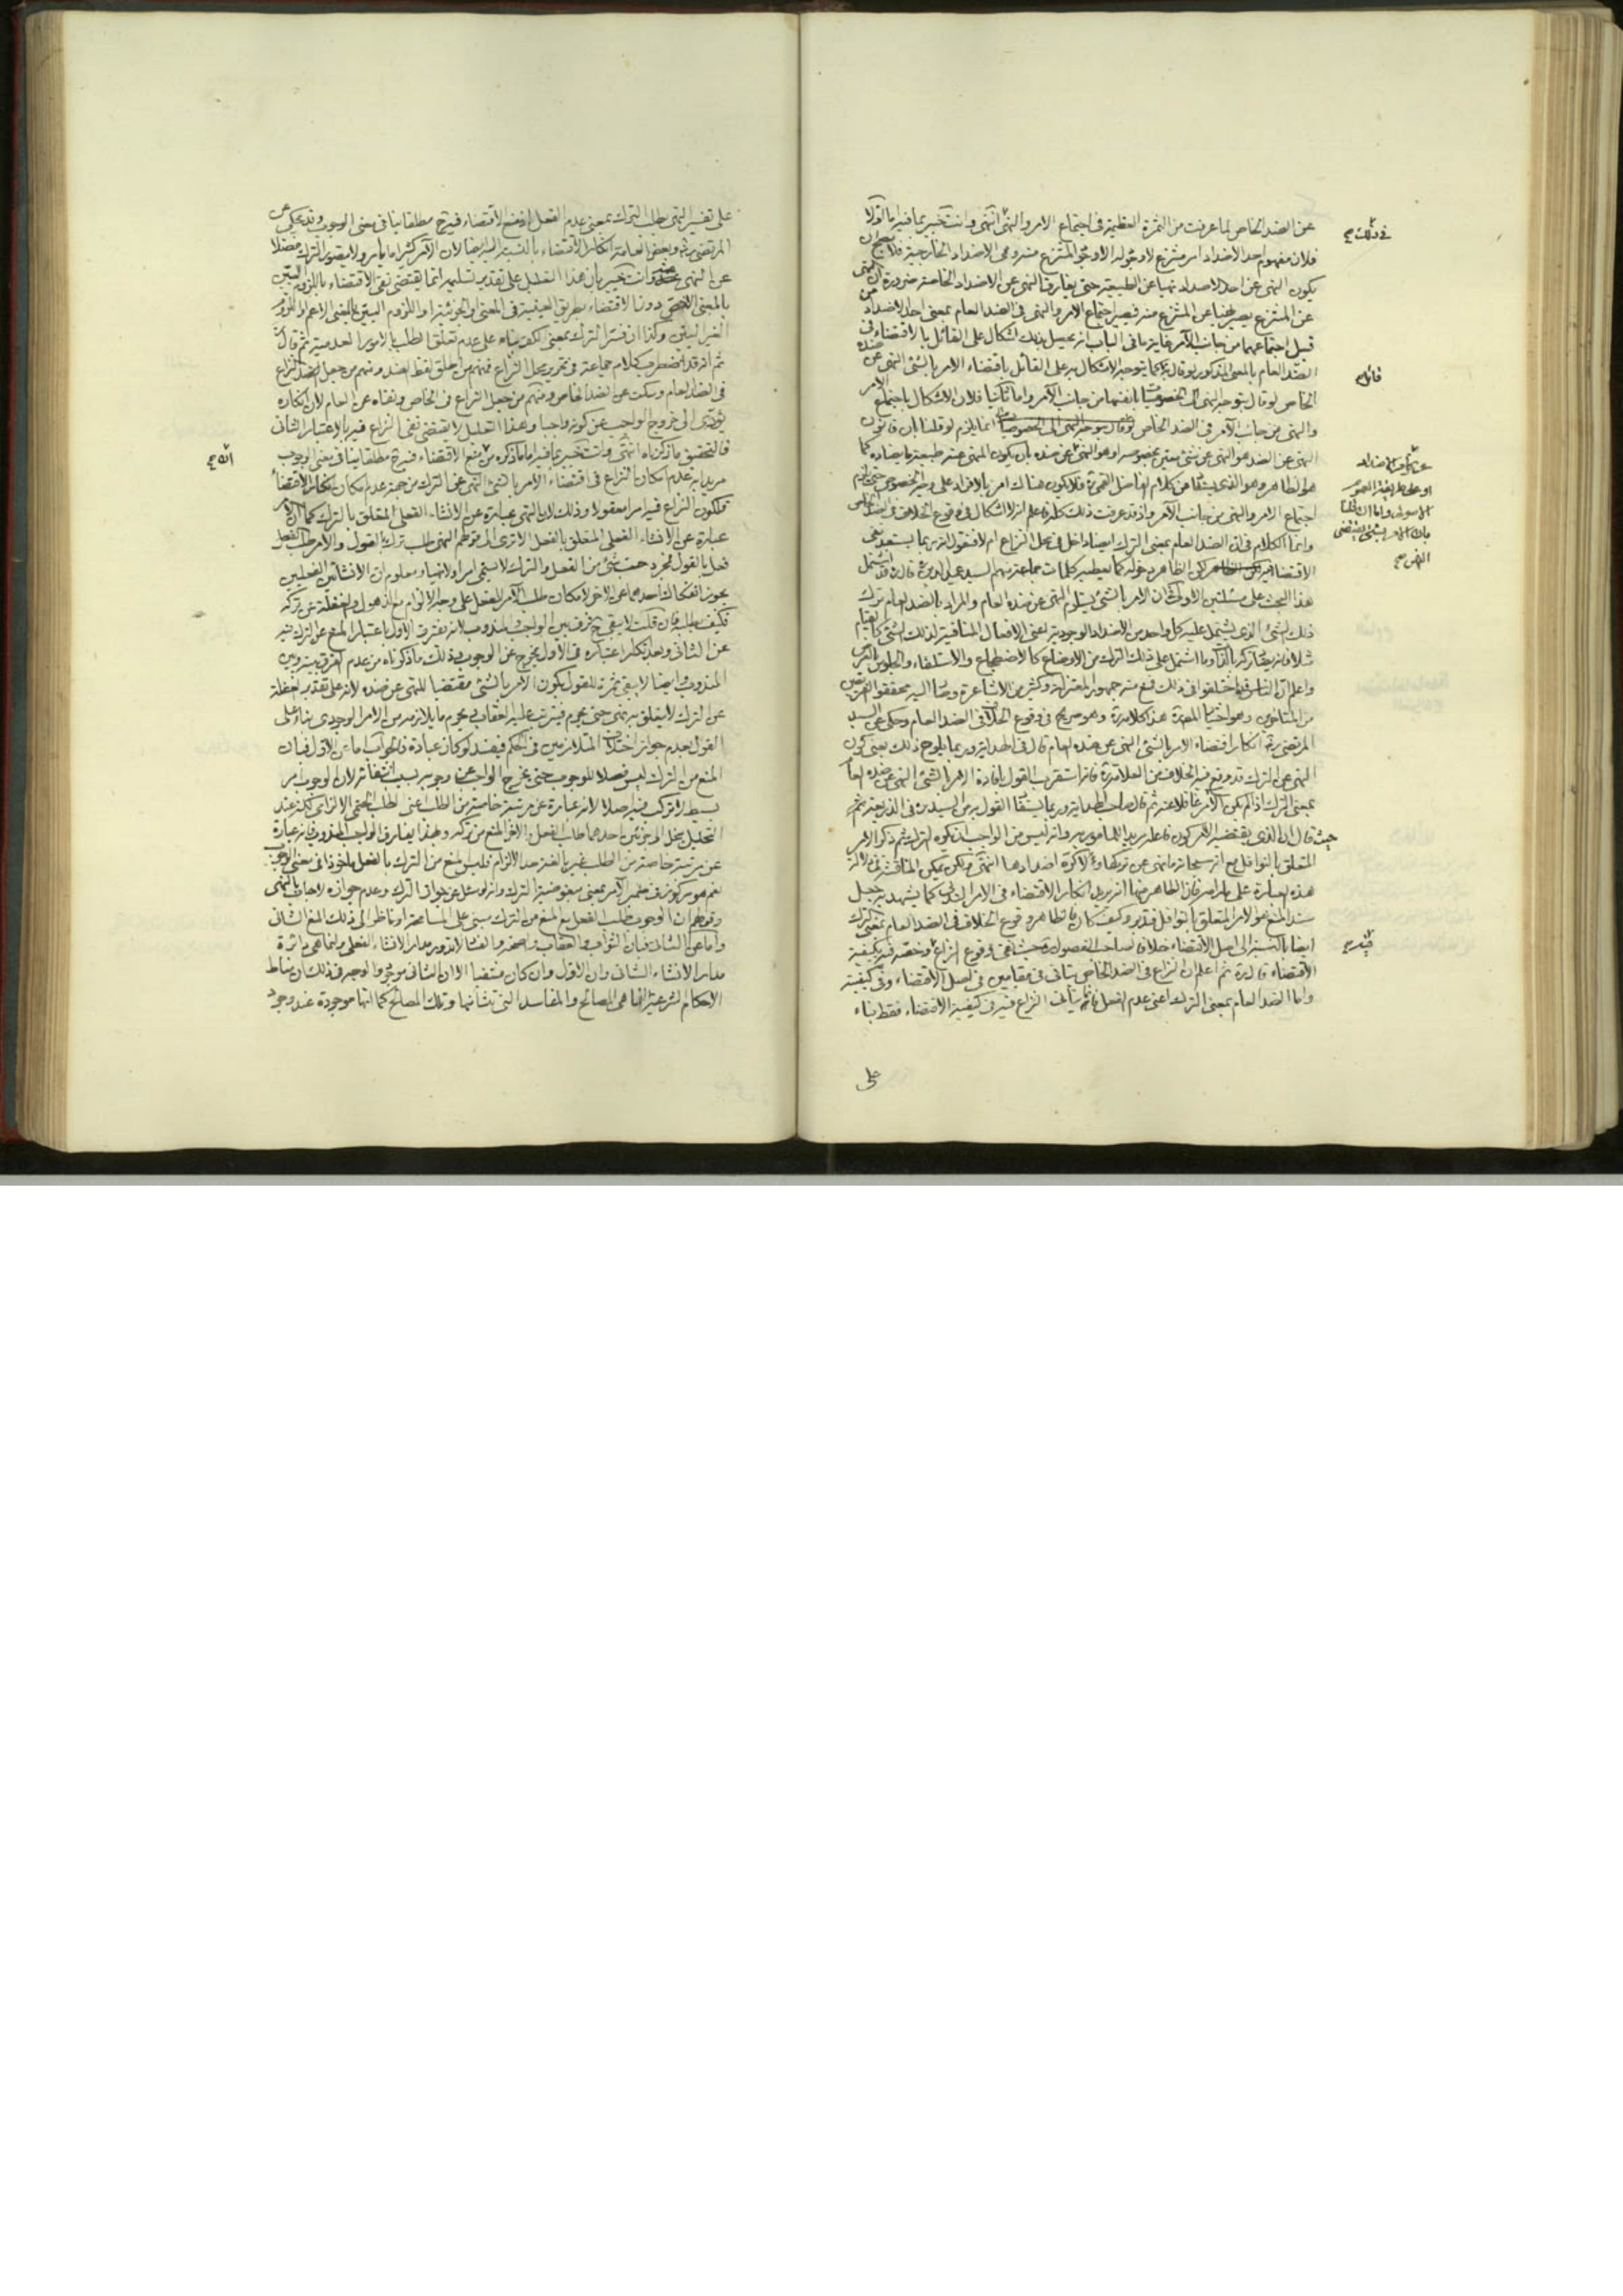 عن الضد الخاص لما عرفت من الثمرة العظيمة في اجتماع الامر والنهي انتهى وانت خبير بما فيه اما اولا
فلان مفهوم احد الاضداد امر منتزع لا وجود له الا وجود المنتزع منه وهى الاضداد الخارجية فلا
يكون النهي عن احد الاضداد نهيا عن الطبيعة حتى يغاير النهي عن الاضداد الخاصة ضرورة ان النهي
عن المنتزع يصير نهيا عن المنتزع منه فيصير اجتماع الامر والنهي في الضد العام بمعنى احد الاضداد من
قبيل اجتماعهما من جانب الآمر غاية ما في الباب انه بذلك اشكال على القائل بالاقتضاء في
الضد العام بالمعنى المذكور لو قال به كما يتوجه الاشكال به على القائل باقتضاء الامر بالشئ النهي عن ضده
الخاص لو قال بتوجه النهي الى الخصوصيات انفسها من جانب الآمر واما ثانيا فلان الاشكال باجتماع الامر
والنهي من جانب الآمر في الضد الخاص انما يلزم لو قلنا بان قانون
النهي عن الضد هو النهي عن شئ معين بخصوصه او هو النهي عن ضده بان يكون المنهي عنه طبيعة ما يضاده كما
هو الظاهر وهو الذي يستفاد من كلام الفاضل القمي ره فلا يكون هناك امر بالافراد على وجه الخصوص حتى يلزم
اجتماع الامر والنهي من جانب الآمر واذ قد عرفت ذلك كله فاعلم انه لا اشكال في وقوع الخلاف في الضد الخاص
وانما الكلام في ان الضد العام بمعنى الترك ايضا داخل في محل النزاع ام لا فنقول انه ربما يستبعد نفي
الاقتضاء فيه لكن الظاهر دخوله كما يظهر من كلمات جماعة منهم السيد عميد الدين ره قال ره قد اشتمل
هذا البحث على مسئلتين الاولى ان الامر بالشئ يستلزم النهي عن ضده العام والمراد بالضد العام ترك
ذلك الشئ الذي يشتمل عليه كل واحد من الاضداد الوجودية اعني الافعال المنافية لذلك الشئ كالقيام
مثلا فانه يغاير تركه بالذات وما اشتمل على ذلك الترك من الاوضاع كالاضطجاع والاستلقاء والجلوس بالعرض
واعلم ان الناس قد اختلفوا في ذلك فمنع منه جمهور المعتزلة وكثير من الاشاعرة وصار اليه محققوا الفريقين
من المتاخرين وهو اختيار المص ره هذا كلامه ره وهو صريح في وقوع الخلاف في الضد العام وحكى عن السيد
المرتضى ره انكار اقتضاء الامر بالشئ النهي عن ضده العام قال في الهداية وربما يلوح ذلك يعنى كون
النهي عن الترك قد وقع فيه الخلاف من العلامة ره فانه استقرب القول بافادة الامر بالشئ النهي عن ضده العام
بمعنى الترك اذا لم يكن الآمر غافلا عنه ثم قال صاحب الهداية وربما يستفاد القول به من السيد ره في الذريعة
حيث قال ان الذي يقتضيه الامر كون فاعله مريدا للمامور به وانه ليس من الواجب ان يكره الترك ثم ذكر الامر
المتعلق بالنوافل مع انه سبحانه ما نهى عن تركها ولا كره اضدادها انتهى ولكن يمكن المناقشة في دلالة
هذه العبارة على مرامه فان الظاهر منها انه يريد انكار الاقتضاء في الامر الندبي كما يشهد به جعل
سند المنع هو الامر المتعلق بالنوافل فتدبر وكيف كان فالظاهر وقوع الخلاف في الضد العام بمعنى الترك
ايضا بالنسبة الى اصل الاقتضاء خلافا لصاحب الفصول ره حيث نفى وقوع النزاع وخصه فيه بكيفية
الاقتضاء قال ره ثم اعلم ان النزاع في الضد الخاص يتاتى في مقامين في اصل الاقتضاء وفي كيفيته
واما الضد العام بمعنى الترك اعنى عدم الفعل فانما يتأتى النزاع فيه في كيفية الاقتضاء فقط بناء
على
في ذلك صح
قائل صح
او على طريقة العموم
الاصولي واما ان قلنا
بان الامر بشئ يقتضى
النهي صح
فيه صح
على تفسير النهي بطلب الترك بمعنى عدم الفعل اذ منع الاقتضاء فيه ح مطلقا ينافي معنى الوجوب وقد يحكى عن
المرتضى ره وبعض العامة انكار الاقتضاء بالنسبة اليه ايضا لان الآمر كثيرا ما يأمر ولا يتصور الترك فضلا
عن النهي عنه وانت خبير بان هذا التعليل على تقدير تسليمه انما يقتضى نفى الاقتضاء باللزوم البين
بالمعنى الاخص دون الاقتضاء بطريق العينية في المعنى او الجزئية او اللزوم البين بالمعنى الاعم او اللزوم
الغير البين وكذا ان فسر الترك بمعنى الكف بناء على عدم تعلق الطلب بالامور العدمية ثم قال ره
ثم انه قد اضطرب كلام جماعة في تحرير محل النزاع فمنهم من اطلق لفظ الضد ومنهم من جعل النزاع
في الضد العام وسكت عن الضد الخاص ومنهم من جعل النزاع في الخاص ونفاه عن العام لان انكاره
يؤدى الى خروج الواجب عن كونه واجبا وهذا التعليل لا يقتضى نفى النزاع فيه بالاعتبار الثاني
فالتحقيق ما ذكرناه انتهى وانت خبير بما فيه اما ما ذكره من منع الاقتضاء فيه ح مطلقا ينافي معنى الوجوب
مريدا به عدم امكان النزاع في اقتضاء الامر بالشئ النهي عن الترك من جهة عدم امكان انكار الاقتضاء
فلكون النزاع فيه امرا معقولا وذلك لان النهي عبارة عن الانشاء الفعلي المتعلق بالترك كما ان الامر
عبارة عن الانشاء الفعلي المتعلق بالفعل الا ترى الى قولهم النهي طلب ترك بالقول والامر طلب الفعل
فعل بالقول فمجرد شئ من الفعل والترك لا يسمى امرا ولا نهيا ومعلوم ان الانشائين الفعليين
يجوز انفكاك احدهما عن الاخر لامكان طلب الآمر للفعل على وجه الالزام مع الذهول والغفلة عن تركه
فكيف بطلبه فان قلت لا يبقى ح فرق بين الواجب والمندوب لانه يفترق الاول باعتبار المنع عن الترك فيه
عن الثاني وبعد انكار اعتباره في الاول يخرج عن الوجوب وذلك ما ذكرناه من عدم الفرق بينه وبين
المندوب وايضا لا يبقى ثمرة للقول بكون الامر بالشئ مقتضيا للنهي عن ضده لانه على تقدير الغفلة
عن الترك لا يتعلق به نهى حتى يحرم فيترتب عليه العقاب ويحرم ما يلازمه من الامر الوجودي بناء على
القول بعدم جواز اختلاف المتلازمين في الحكم فيفسد لو كان عبادة فالجواب اما عن الاول فبان
المنع من الترك ليس فصلا للوجوب حتى يخرج الواجب عن وجوبه بسبب انتفائه لان الوجوب امر
بسيط لا تركب فيه اصلا لانه عبارة عن مرتبة خاصة من الطلب اعنى الطلب الحتمي الالزامى لكنه عند
التحليل ينحل الى جزئين احدهما طلب الفعل والاخر المنع من تركه وبهذا يفارق الواجب المندوب فانه عبارة
عن مرتبة خاصة من الطلب غير بالغة حد الالزام فليس المنع من الترك بالفعل ماخوذا في معنى الوجوب
نعم هو مركوز في ضمير الآمر بمعنى مبغوضية الترك وانه لو سئل عن جواز الترك وعدم جوازه لاجاب بالنهي
وقولهم ان الوجوب طلب الفعل مع المنع من الترك مبنى على المسامحة او ناظر الى ذلك المنع الشانى
واما عن الثاني فبان الثواب والعقاب والصحة والفساد لا تدور مدار الانشاء الفعلى وانما هى دائرة
مدار الانشاء الشانى وان الاول وان كان منتفيا الا ان الثاني موجود والوجه في ذلك ان مناط
الاحكام الشرعية انما هى المصالح والمفاسد التى تنشأ منها وتلك المصالح كما انها موجودة عند وجود